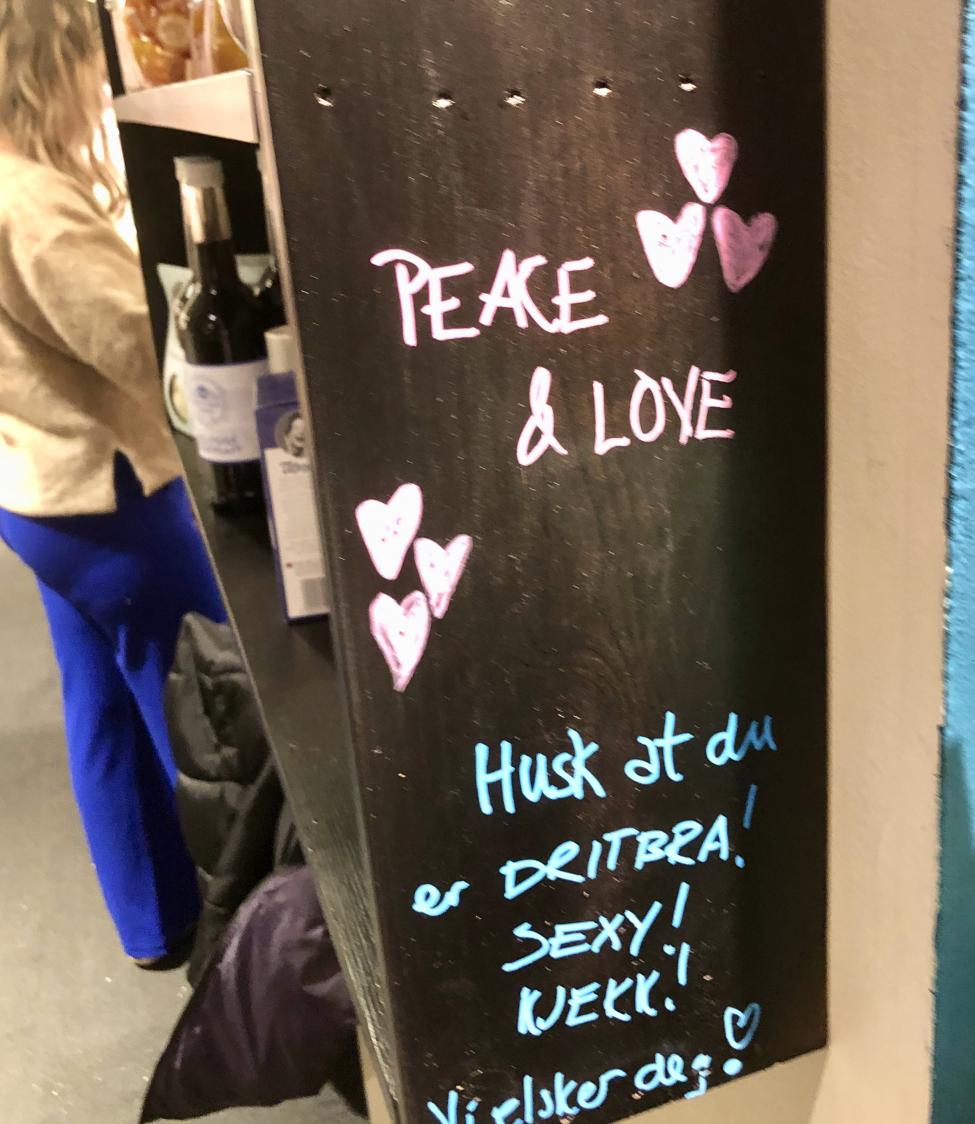 PEACE
& LOVE
Husk at du
er DRITBRA!
SEXY!
KJEKK!
Vi elsker deg!